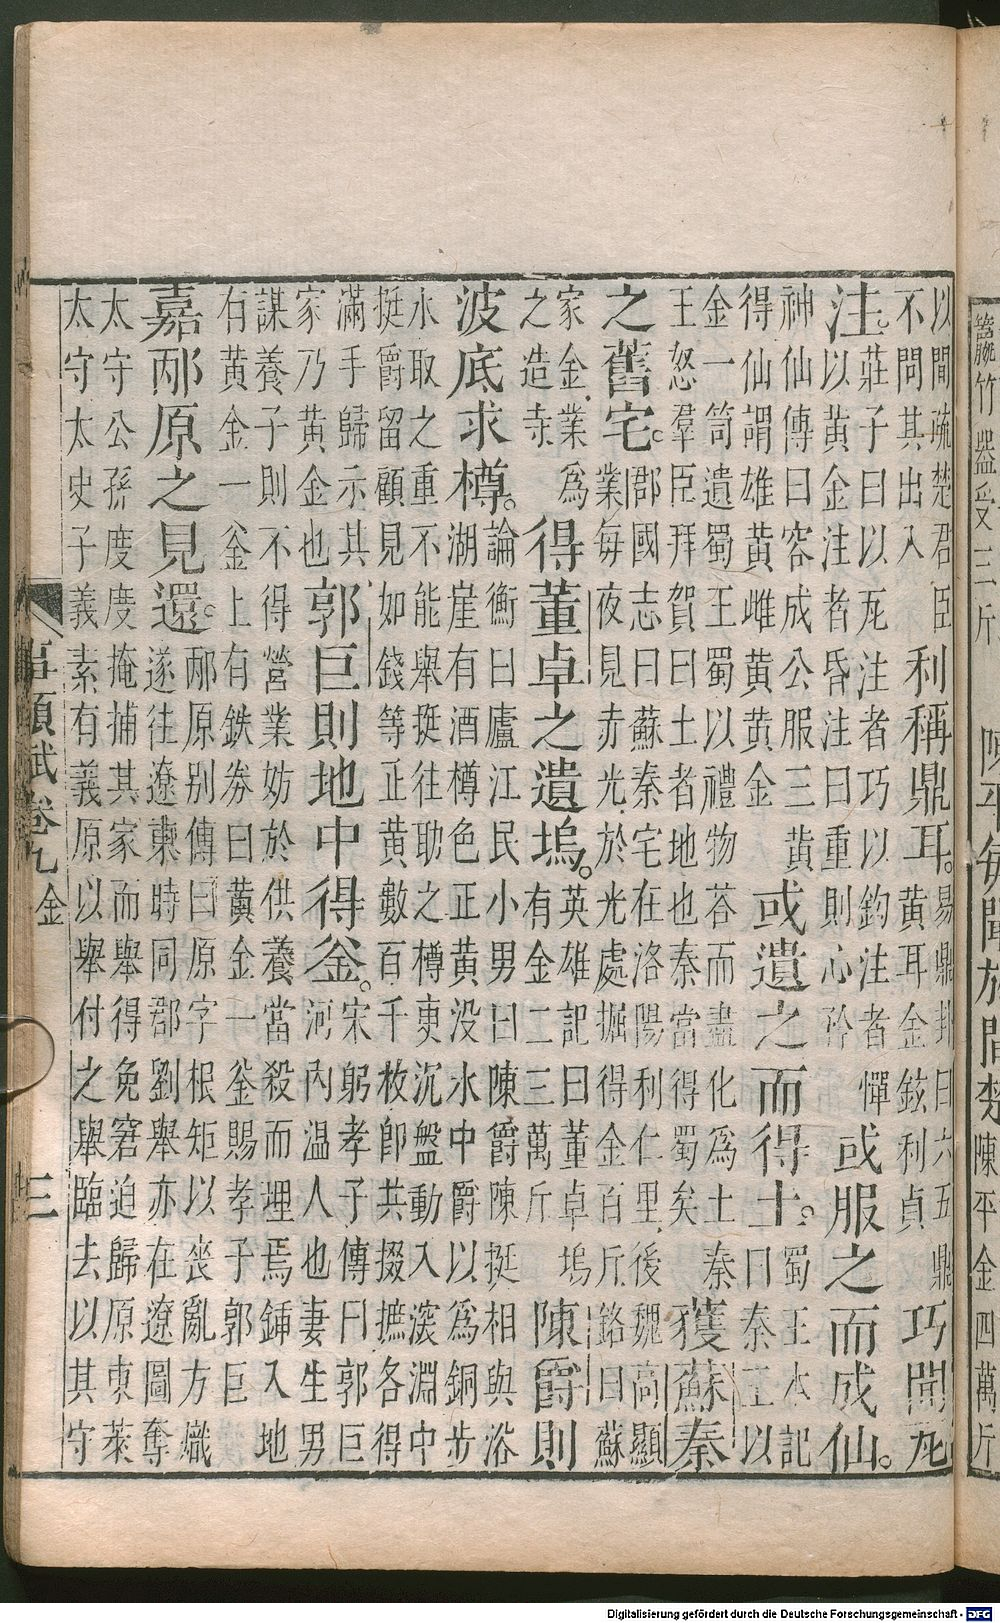 籯竹器受三斤
陳平
陳平金四萬斤
以閒疏楚君臣
不問其出入
利稱鼎耳。
易鼎卦曰六五鼎
黃耳金鉉利貞
巧閒瓦
注。
莊子曰以瓦注者巧以鈎注者憚
以黃金注者昏注曰重則心矜
或服之而成仙。
神仙傳曰容成公服三黃
得仙謂雄黃雌黃黃金
或遺之而得土。
蜀王本記
曰秦王以
金一笥遺蜀王蜀以禮物荅而盡化為土秦
王怒羣臣拜賀曰土者地也秦當得蜀矣
獲蘇秦
之舊宅。
郡國志曰蘇秦宅在洛陽利仁里後魏高顯
業每夜見赤光於光處掘得金百斤銘曰蘇
家金業為
之造寺
得董卓之遺塢。
英雄記曰董卓塢
有金二三萬斤
陳爵則
波底求樽。
論衡曰廬江民小男曰陳爵陳挺相與浴
湖崖有酒樽色正黃没水中爵以為銅步
水取之重不能舉挺往助之樽更沉盤動入深淵中
挺爵留顧見如錢等正黃數百千枚卽共掇摭各得
滿手歸示其
家乃黃金也
郭巨則地中得釜。
宋躬孝子傳曰郭巨
河內温人也妻生男
謀養子則不得營業妨於供養當殺而埋焉鍤入地
有黃金一釜上有鉄劵曰黃金一釜賜孝子郭巨
嘉邴原之見還。
邴原別傳曰原字根矩以喪亂方熾
遂往遼東時同郡劉舉亦在遼圖奪
太守公孫度度掩捕其家而舉得免窘迫歸原東萊
太守太史子義素有義原以舉付之舉臨去以其守
事類賦卷九 金 三
Digitalisierung gefördert durch die Deutsche Forschungsgemeinschaft - DFG